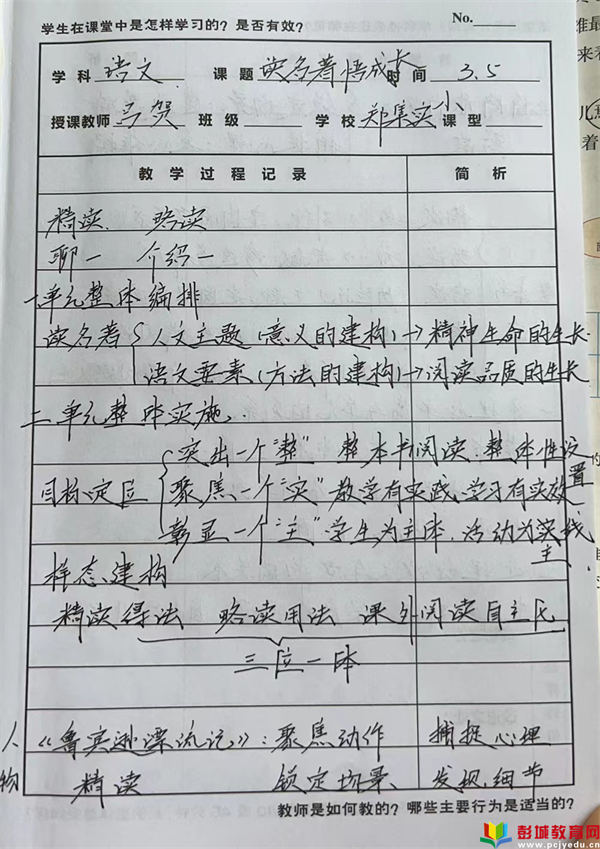 学生在课堂中是怎样学习的？是否有效？ No.
学科 语文 课题 读名著悟成长 时间 3.5
授课教师 马贺 班级 学校 郑集实小 课型
教学过程记录 简析
精读、略读
聊一 介绍一
一、单元整体编排
读名著{人文主题（意义的建构）→精神生命的生长
语文要素（方法的建构）→阅读品质的生长
二、单元整体实施。
突出一个"整" 整本书阅读、整体性设置
目标定位{聚焦一个"实"教学有实践、学习有实效
彰显一个"主"学生为主体，活动为主线
样态建构
精读得法 略读用法 课外阅读自主化
三位一体
人物 《鲁宾逊漂流记》：聚焦动作 捕捉心理
精读 锁定场景、发现细节
教师是如何教的？哪些主要行为是适当的？
彭城教育网
www.pcjyedu.cn
难最
来看
儿
着